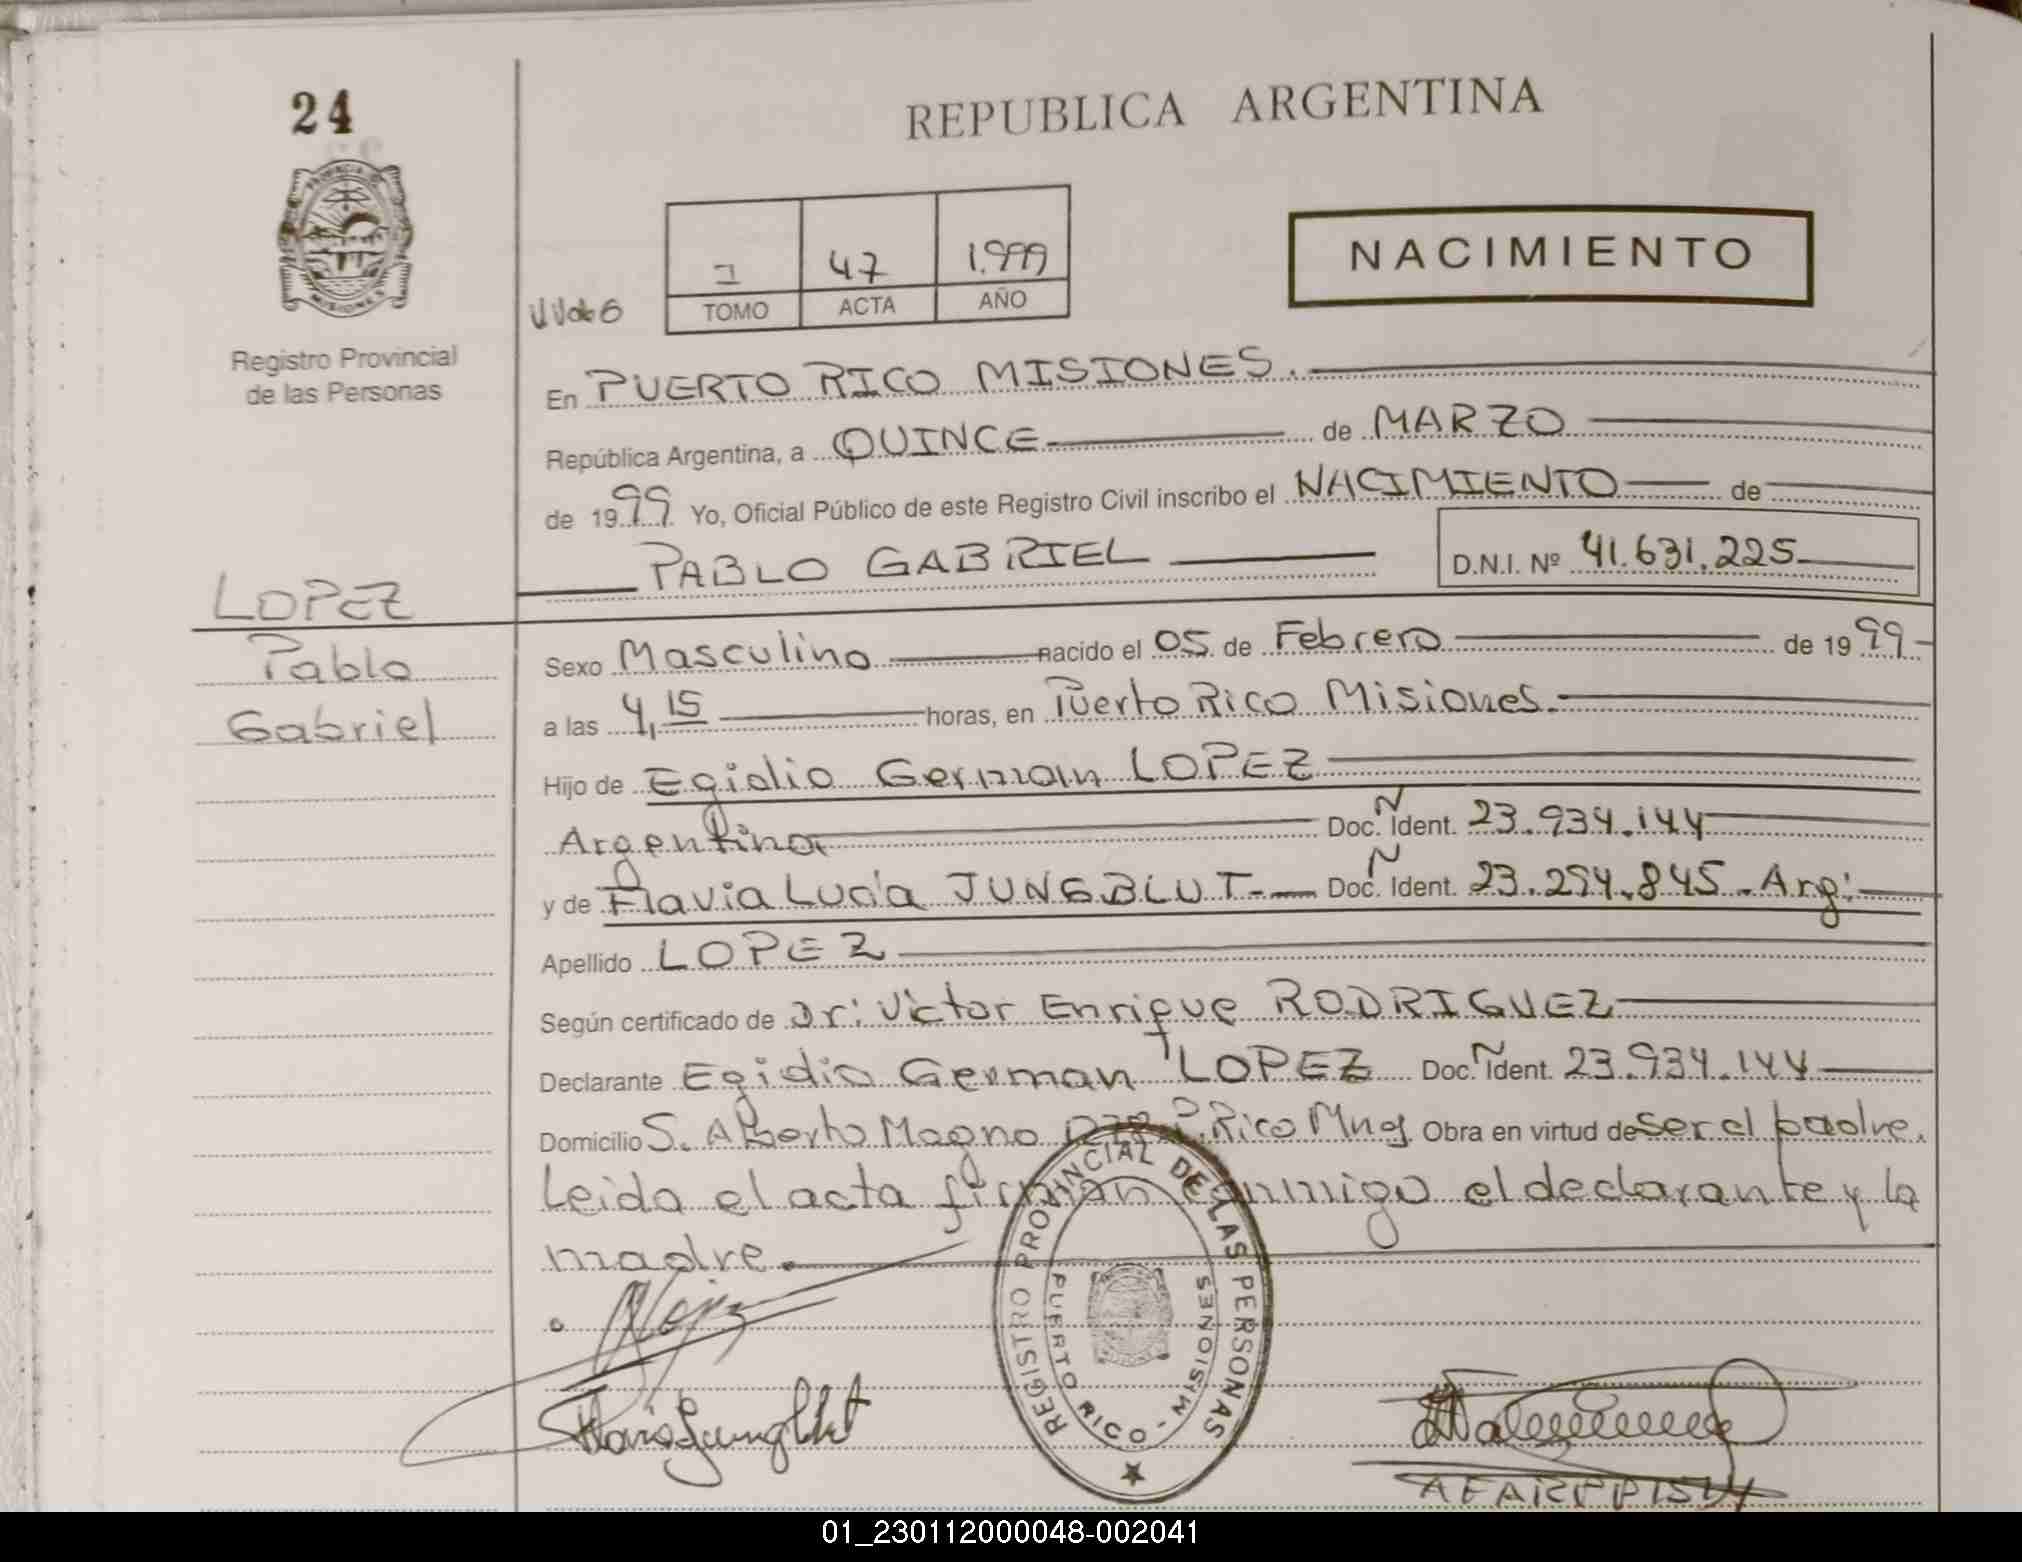 24
REPUBLICA ARGENTINA
PROVINCIA DE
MISIONES
Registro Provincial
de las Personas
1 47 1.999
TOMO ACTA AÑO
NACIMIENTO
En PUERTO RICO MISIONES.
República Argentina, a QUINCE de MARZO
de 1999 Yo, Oficial Público de este Registro Civil inscribo el NACIMIENTO de
PABLO GABRIEL D.N.I. Nº 41.631.225
LOPEZ
Pablo
Gabriel
Sexo Masculino nacido el 05 de Febrero de 1999
a las 4,15 horas, en Puerto Rico Misiones.
Hijo de Egidio German LOPEZ
Argentino Doc. Ident. 23.934.144
y de Flavia Lucía JUNGBLUT.- Doc. Ident. 23.294.845. Arg:
Apellido LOPEZ
Según certificado de Dr: Victor Enrique RODRIGUEZ
Declarante Egidio German LOPEZ Doc. Ident. 23.934.144
Domicilio S. Alberto Magno P. Rico Mnes Obra en virtud de ser el padre.
Leida el acta firman conmigo el declarante y la
madre.
REGISTRO PROVINCIAL DE LAS PERSONAS
PUERTO RICO - MISIONES
01_230112000048-002041